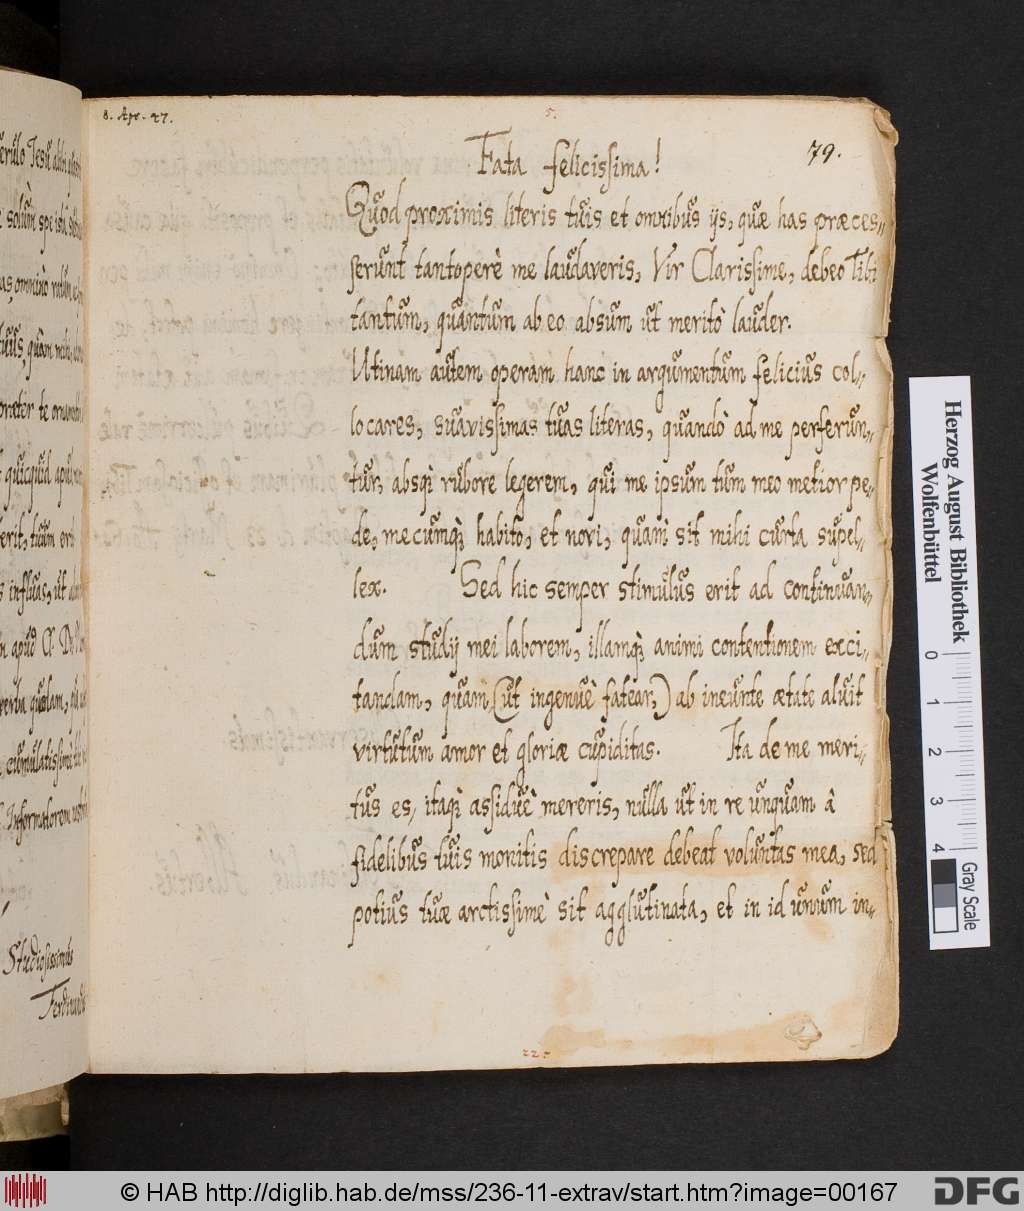 8. Apr. 27.
5.
79.
Fata felicissima!
Quod proximis literis tuis et omnibus ijs, quæ has præces-
serunt tantoperè me laudaveris, Vir Clarissime, debeo Tibi
tantum, quantum ab eo absum ut meritò lauder.
Utinam autem operam hanc in argumentum felicius col-
locares, suavissimas tuas literas, quandò ad me perferun-
tur, absq; rubore legerem, qui me ipsum tum meo metior pe-
de, mecumq; habito, et novi, quàm sit mihi curta supel-
lex. Sed hic semper stimulus erit ad continuan-
dum studij mei laborem, illamq; animi contentionem exci-
tandam, quam (ut ingenuè fatear,) ab ineunte ætate aluit
virtutum amor et gloriæ cupiditas. Ita de me meri-
tus es, itaq; assiduè mereris, nulla ut in re unquam â
fidelibus tuis monitis discrepare debeat voluntas mea, sed
potius tuæ arctissimè sit agglutinata, et in id unum in-
22.
Studiosissimus
Ferdinand
Herzog August Bibliothek
Wolfenbüttel
0 1 2 3 4
Gray Scale
© HAB http://diglib.hab.de/mss/236-11-extrav/start.htm?image=00167
DFG